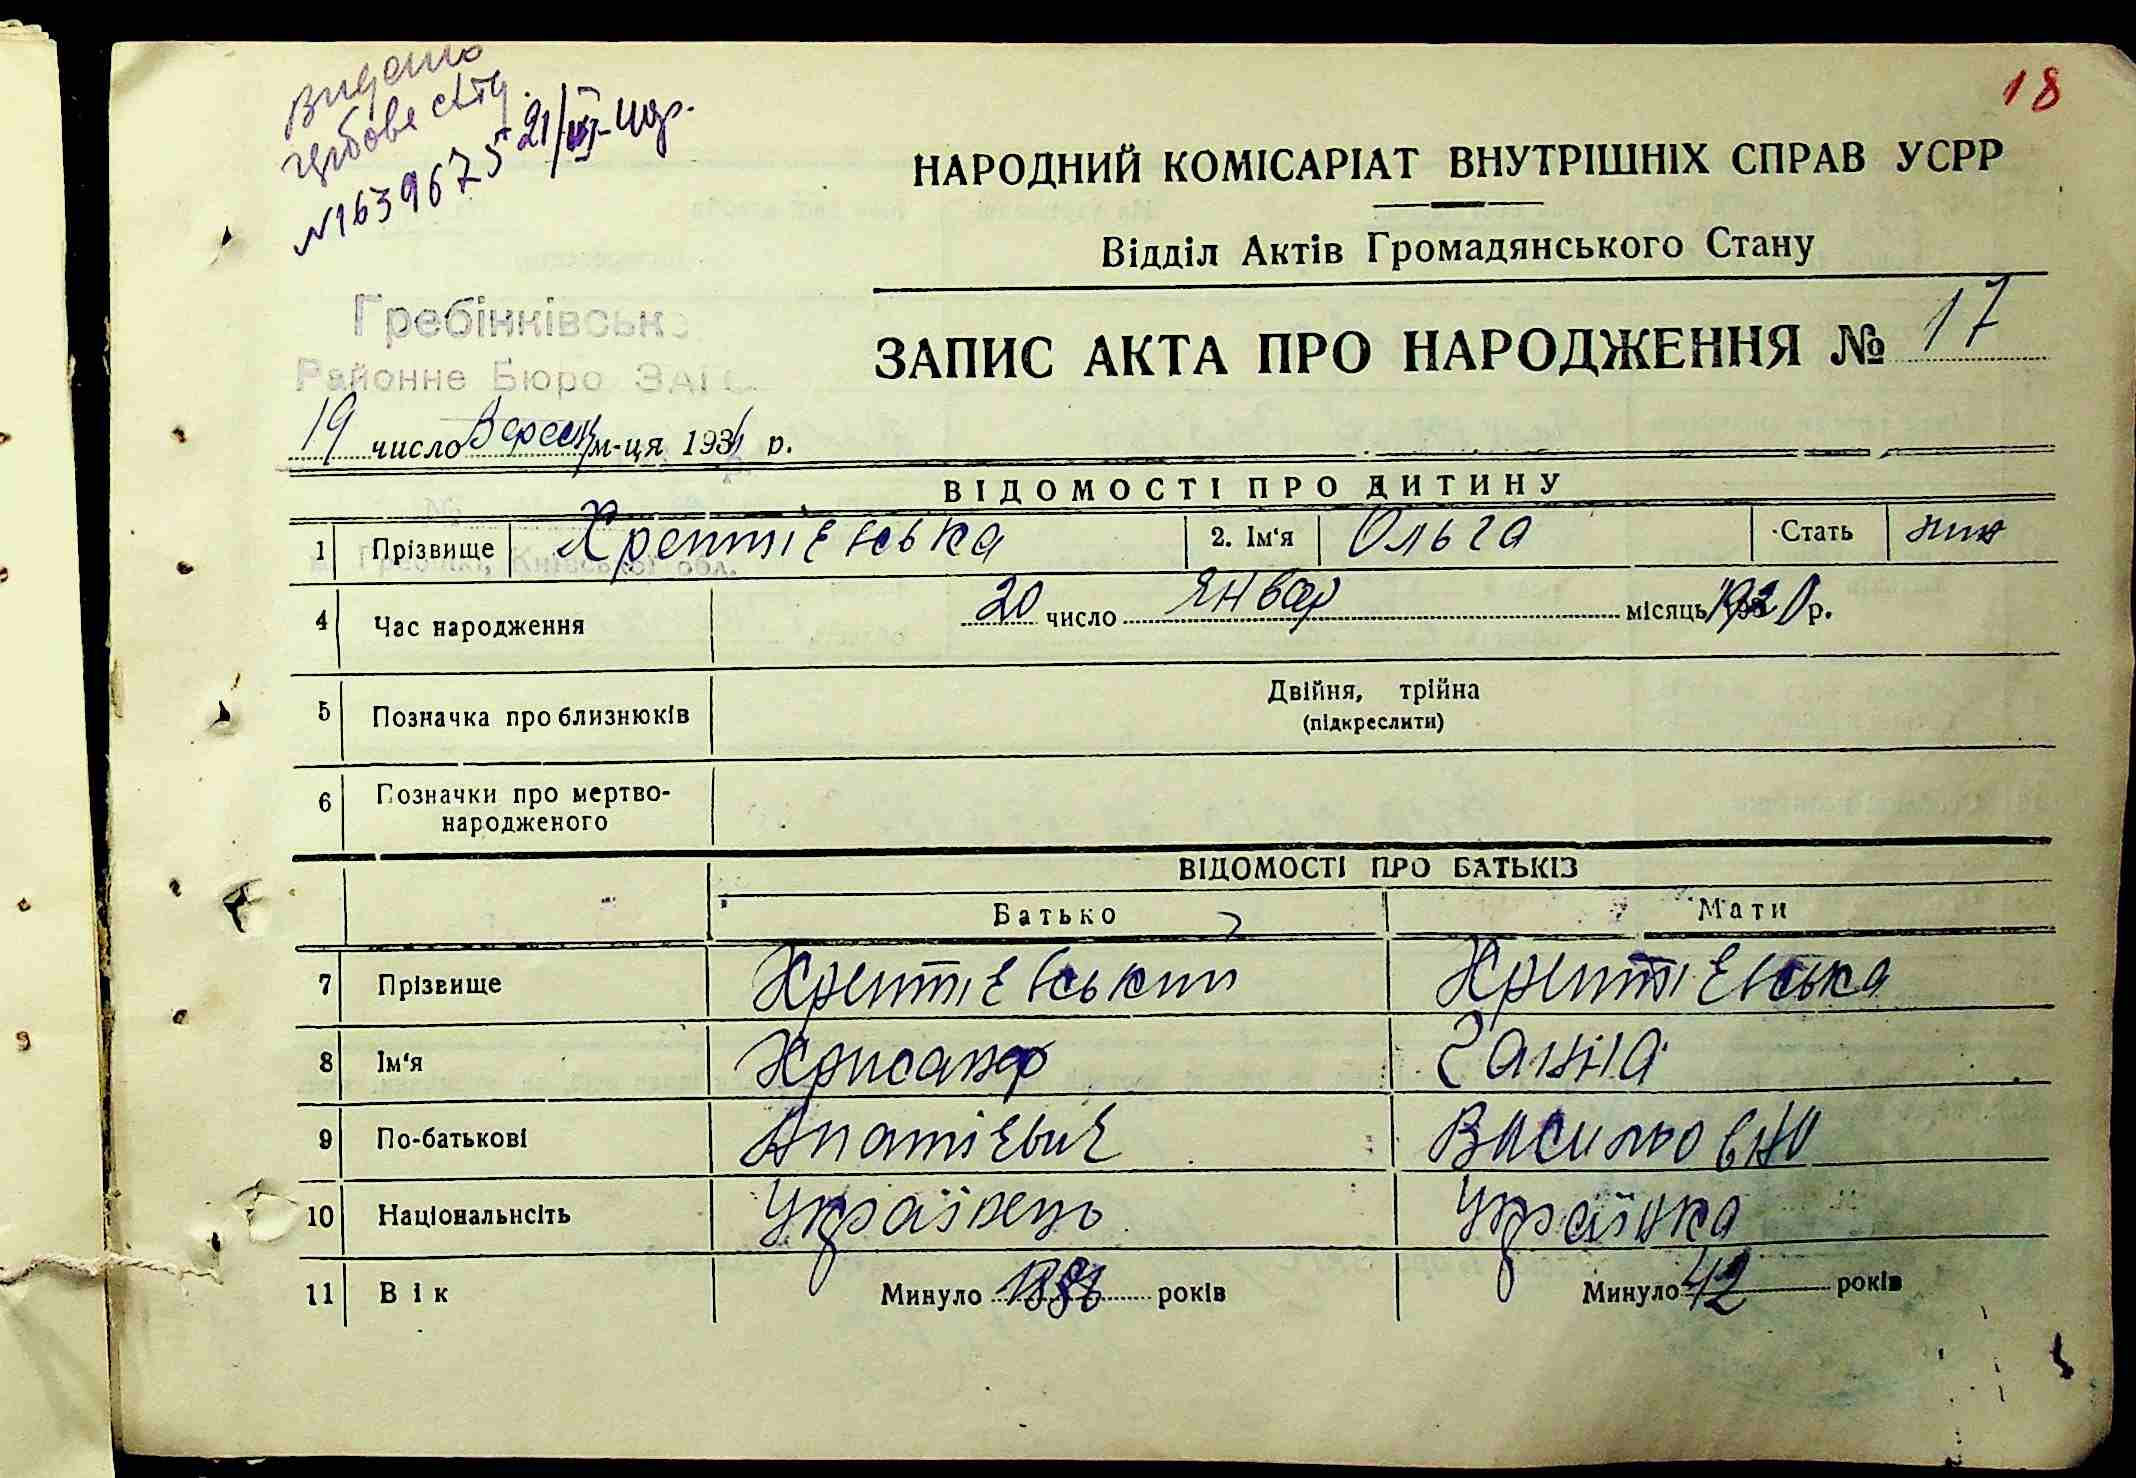 18
Видано
№1639675 21/VI-41р.
НАРОДНИЙ КОМІСАРІАТ ВНУТРІШНІХ СПРАВ УСРР
Відділ Актів Громадянського Стану
Гребінківськ
Районне Бюро ЗАГС
ЗАПИС АКТА ПРО НАРОДЖЕННЯ № 17
19 число Вересня м-ця 193 р.
ВІДОМОСТІ ПРО ДИТИНУ
1 Прізвище Хрептієвська 2. Ім'я Ольга Стать жін
4 Час народження 20 число Январ місяць 1920 р.
5 Позначка про близнюків Двійня, трійна
(підкреслити)
6 Позначки про мертво-
народженого
ВІДОМОСТІ ПРО БАТЬКІВ
Батько Мати
7 Прізвище Хрептієвський Хрептієвська
8 Ім'я Хрисанф Ганна
9 По-батькові Ипатієвич Васильовна
10 Національнсіть Українець Українка
11 Вік Минуло років Минуло 42 років